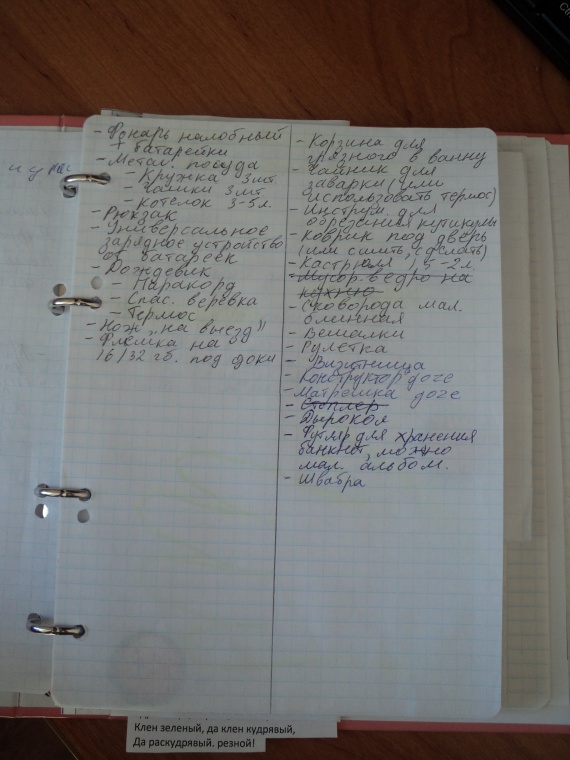 - Фонарь налобный
+ батарейки
- Метал. посуда
- Кружка 3 шт.
- Чашки 3 шт.
- котелок 3-5л.
- Рюкзак
- Универсальное
зарядное устройство
от батареек
- Дождевик
- Паракорд
- Спас. веревка
- Термос
- Нож „на выезд"
- Флешка на
16/32 гб. под доки
- Корзина для
грязного в ванну
- Чайник для
заварки (или
использовать термос)
- Инструм. для
обрезания кутикулы
- Коврик под дверь
(или сшить, сделать)
- Кастрюля 1,5-2л.
- Мусор. ведро на
кухню
- Сковорода мал.
блинная
- Вешалки
- Рулетка
- Визитница
- Конструктор доче
- Матрешка доче
- Степлер
- Дырокол
- Футляр для хранения
банкнот, можно
мал. альбом.
- Швабра
Клен зеленый, да клен кудрявый,
Да раскудрявый. резной!